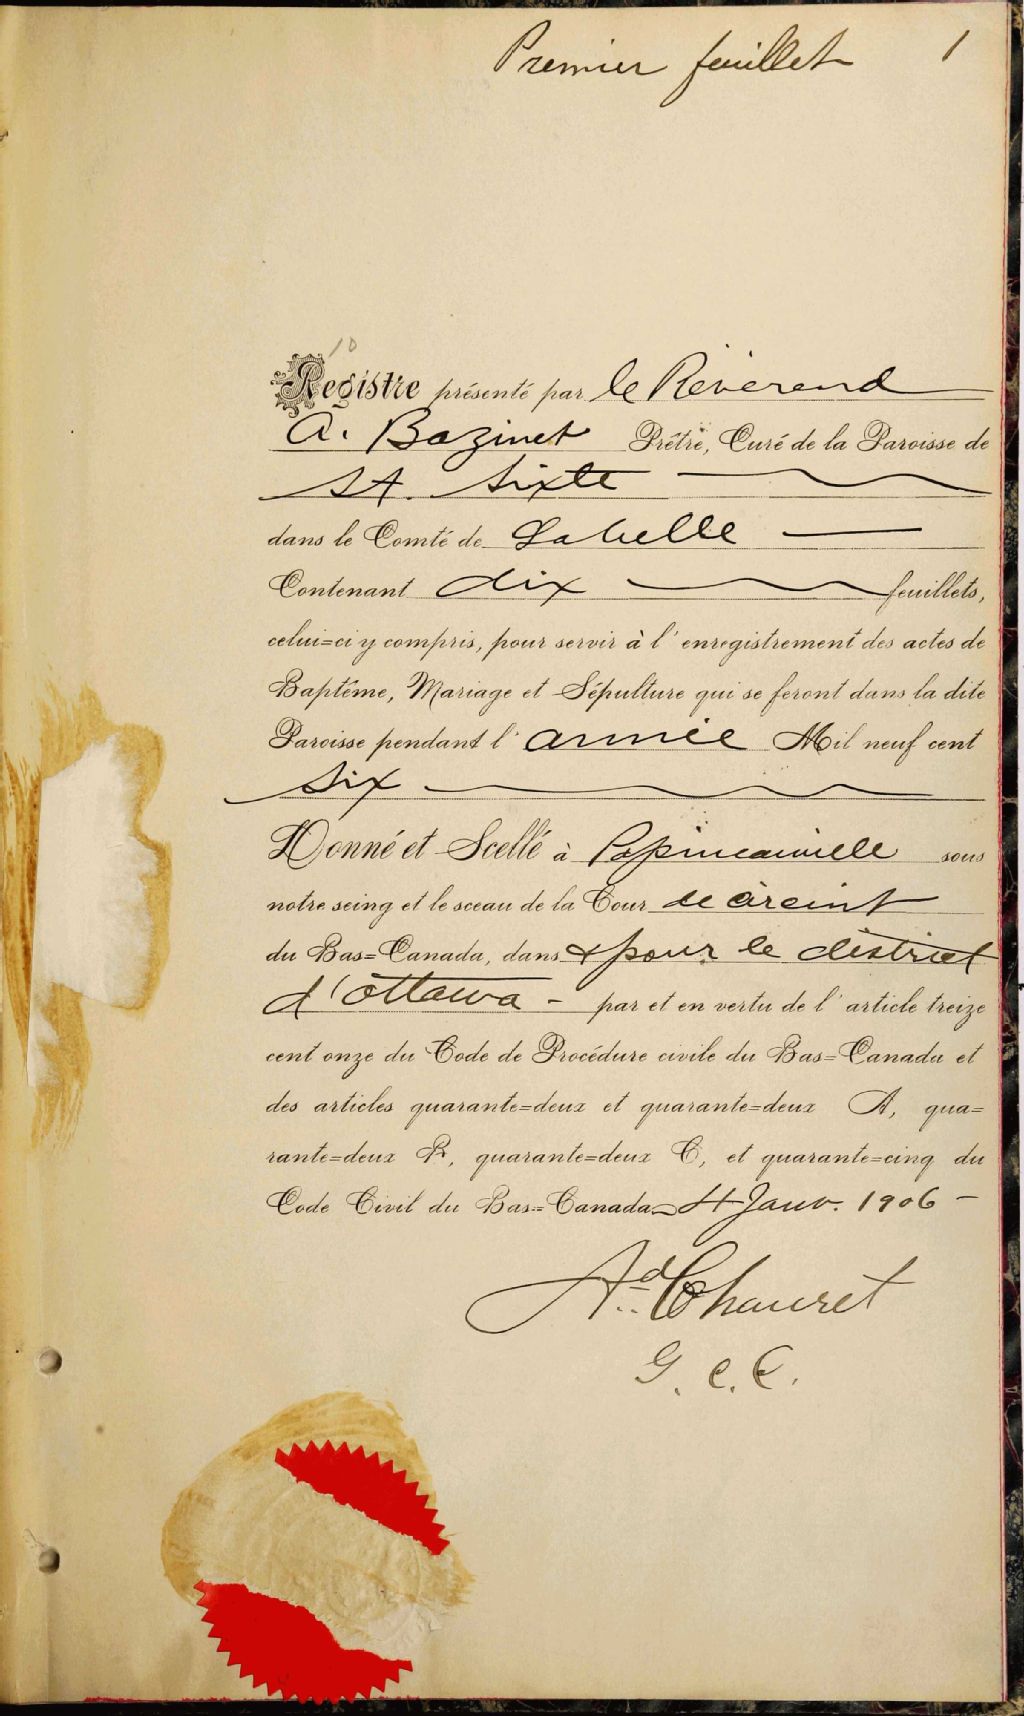 Premier feuillet 1
10
Registre présenté par le Révérend
A. Bazinet Prêtre, Curé de la Paroisse de
St. Sixte
dans le Comté de Labelle
Contenant dix feuillets,
celui=ci y compris, pour servir à l'enregistrement des actes de
Baptême, Mariage et Sépulture qui se feront dans la dite
Paroisse pendant l'année Mil neuf cent
six
Donné et Scellé à Papineauville sous
notre seing et le sceau de la Cour de circuit
du Bas=Canada, dans & pour le district
d'Ottawa - par et en vertu de l'article treize
cent onze du Code de Procédure civile du Bas=Canada et
des articles quarante=deux et quarante=deux A, qua=
rante=deux B, quarante=deux C, et quarante=cinq du
Code Civil du Bas=Canada 4 Janv. 1906 -
Ad. Chauret
G. C. C.